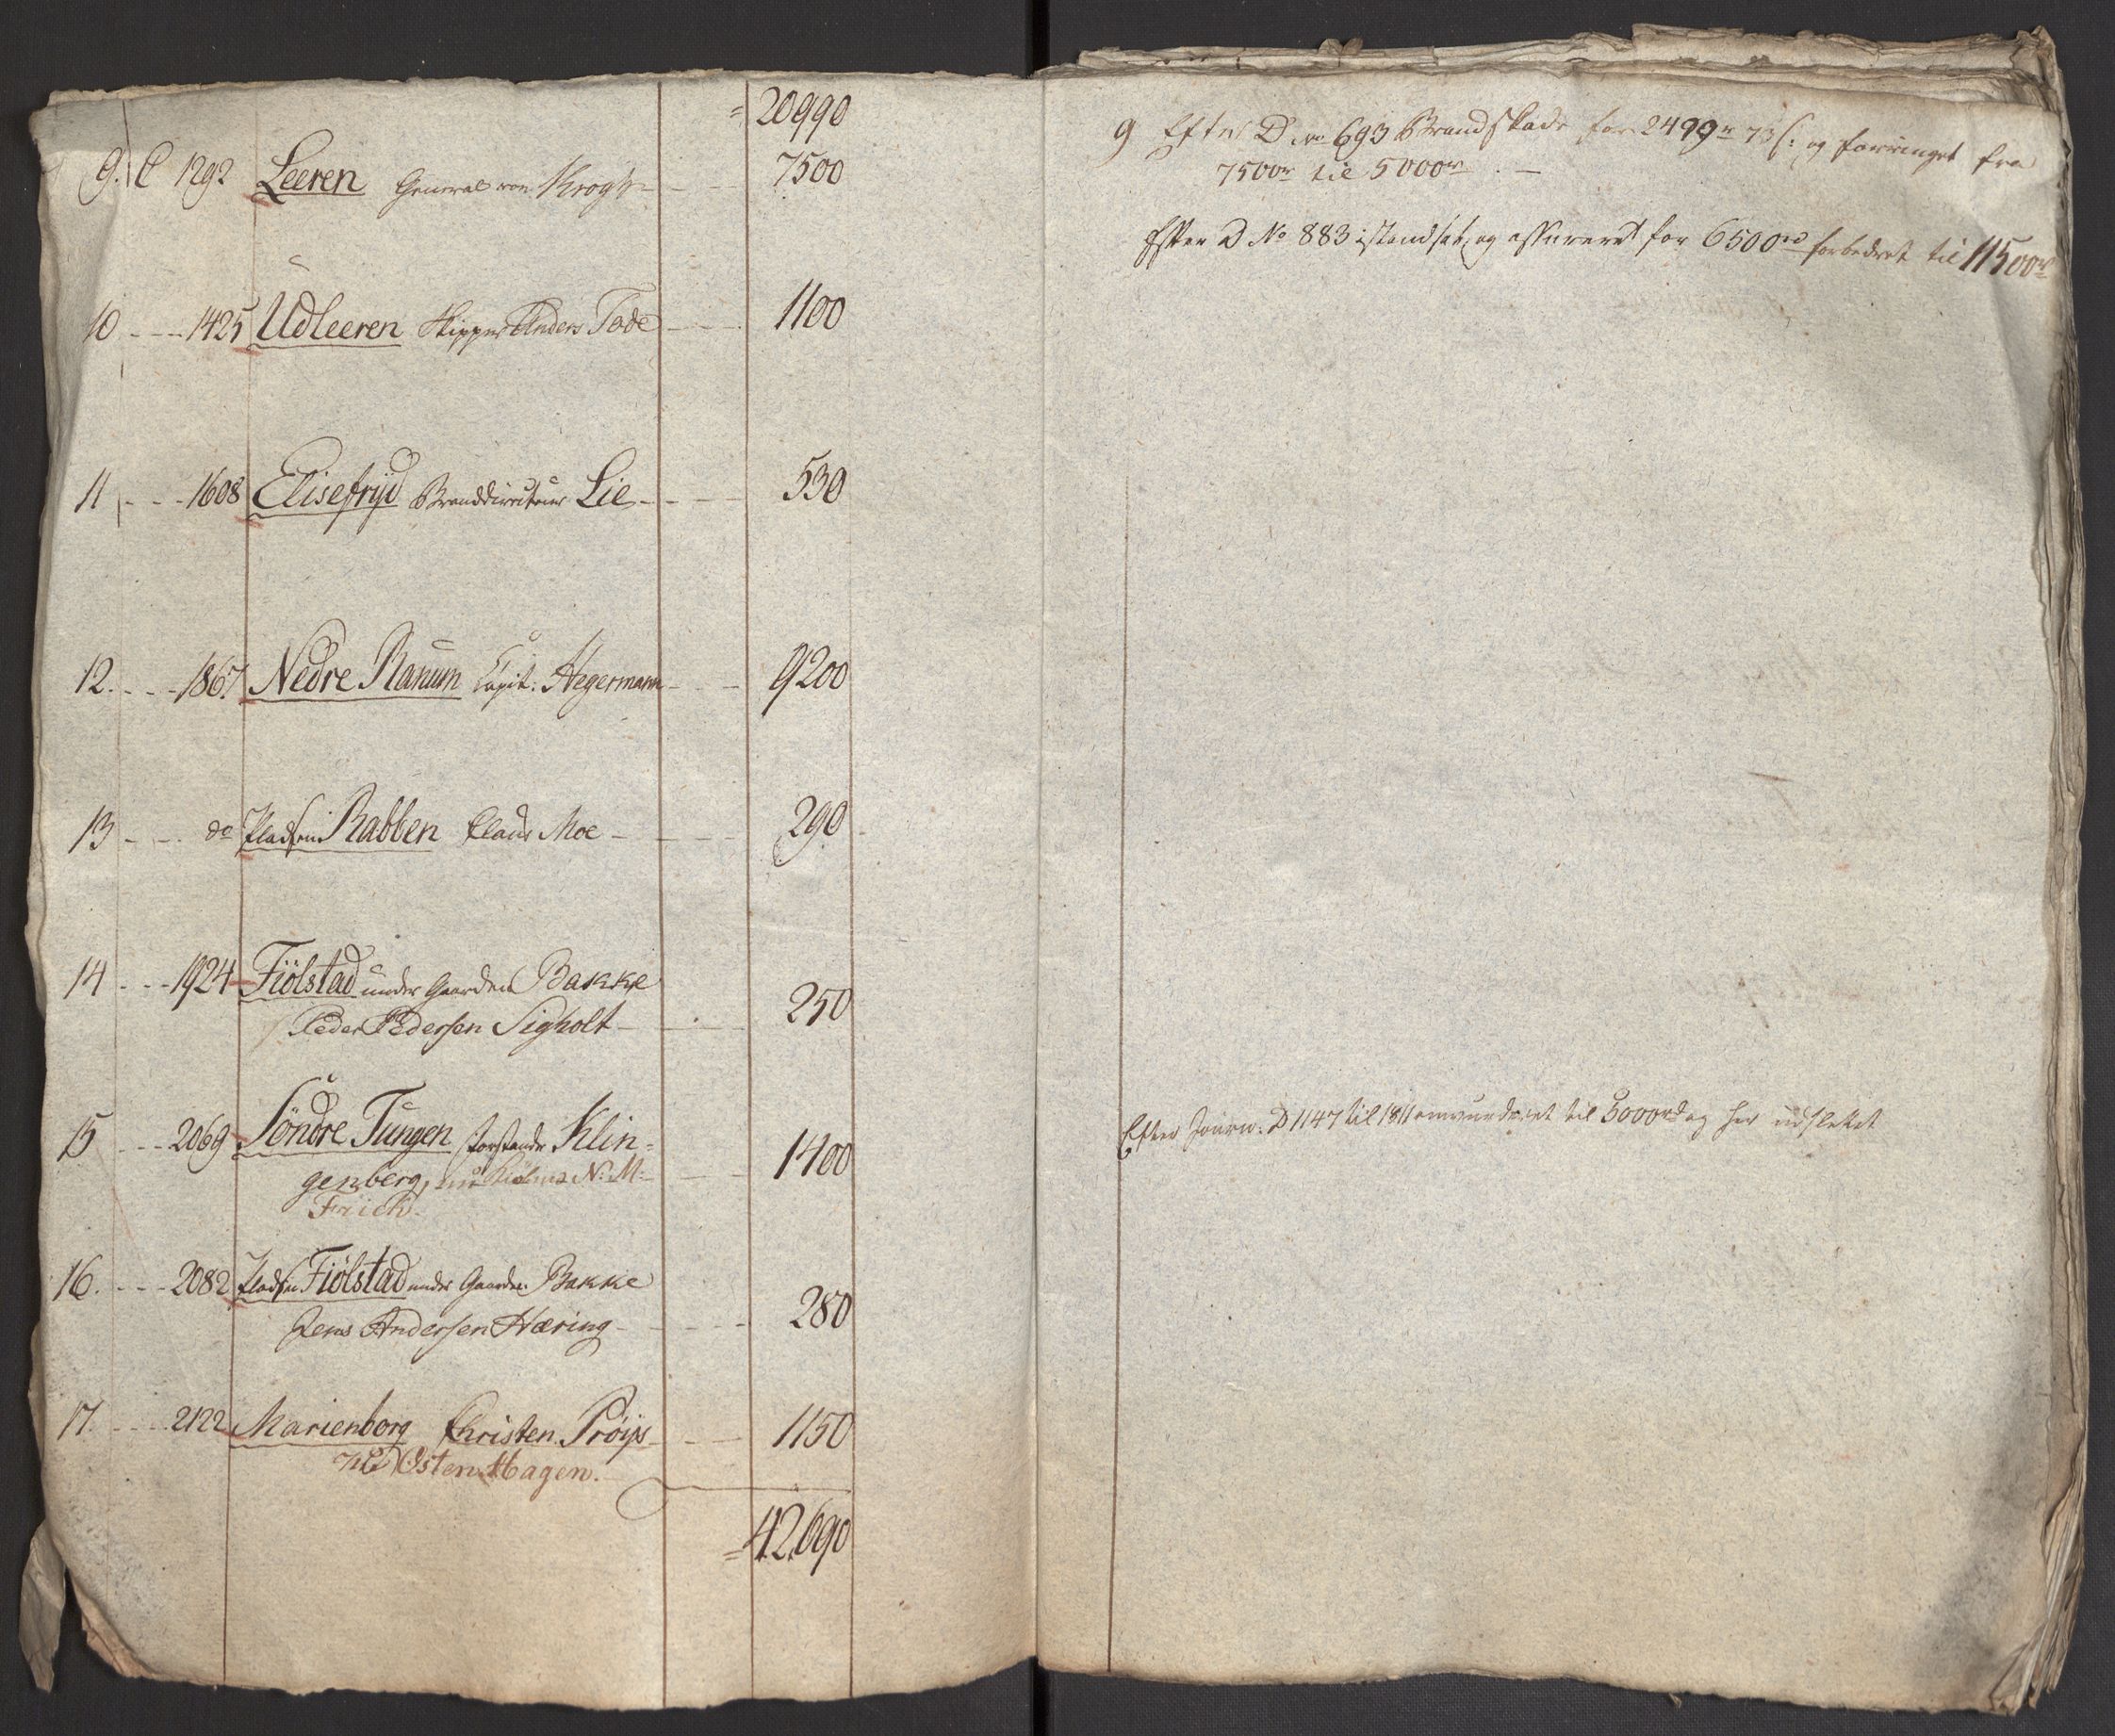 = 20990
9. C 1292 Leeren General von Krogh - - 7500
10 - - - 1425 Udleeren Skipper Anders Tode - - - 1100
11 - - - 1608 Elisefryd Branddirecteur Lie - - - 530
12. - - - 1867 Nedre Ranum Capit: Hegermann - - - 9200
13 - - - do Pladsen Rabben Claus Moe - - - 290
14 - - - 1924 Fiölstad under Gaarden Bakke
Peder Pedersen Sigholt - - - 250
15 - - - 2069 Söndre Tungen Forstander Klin-
genberg, nu N: M: - - 1400
Frich.
16. - - - 2082 Pladsen Fiölstad under Gaarden Bakke
Jens Andersen Hæring - - - 280
17. - - - 2122 Marienborg Christen Pröips - - - 1150
Osten Hagen.
= 42690
9 Efter D No 693 Brandskade for 2499 r 73 s: og forringet fra
7500 r til 5000 r . -
Efter D No 883 istandsat og assureret for 6500 rd forbedret til 11500 r
Efter Journ: D 1147 til 1811 omvurderet til 5000 rd og her udslettet